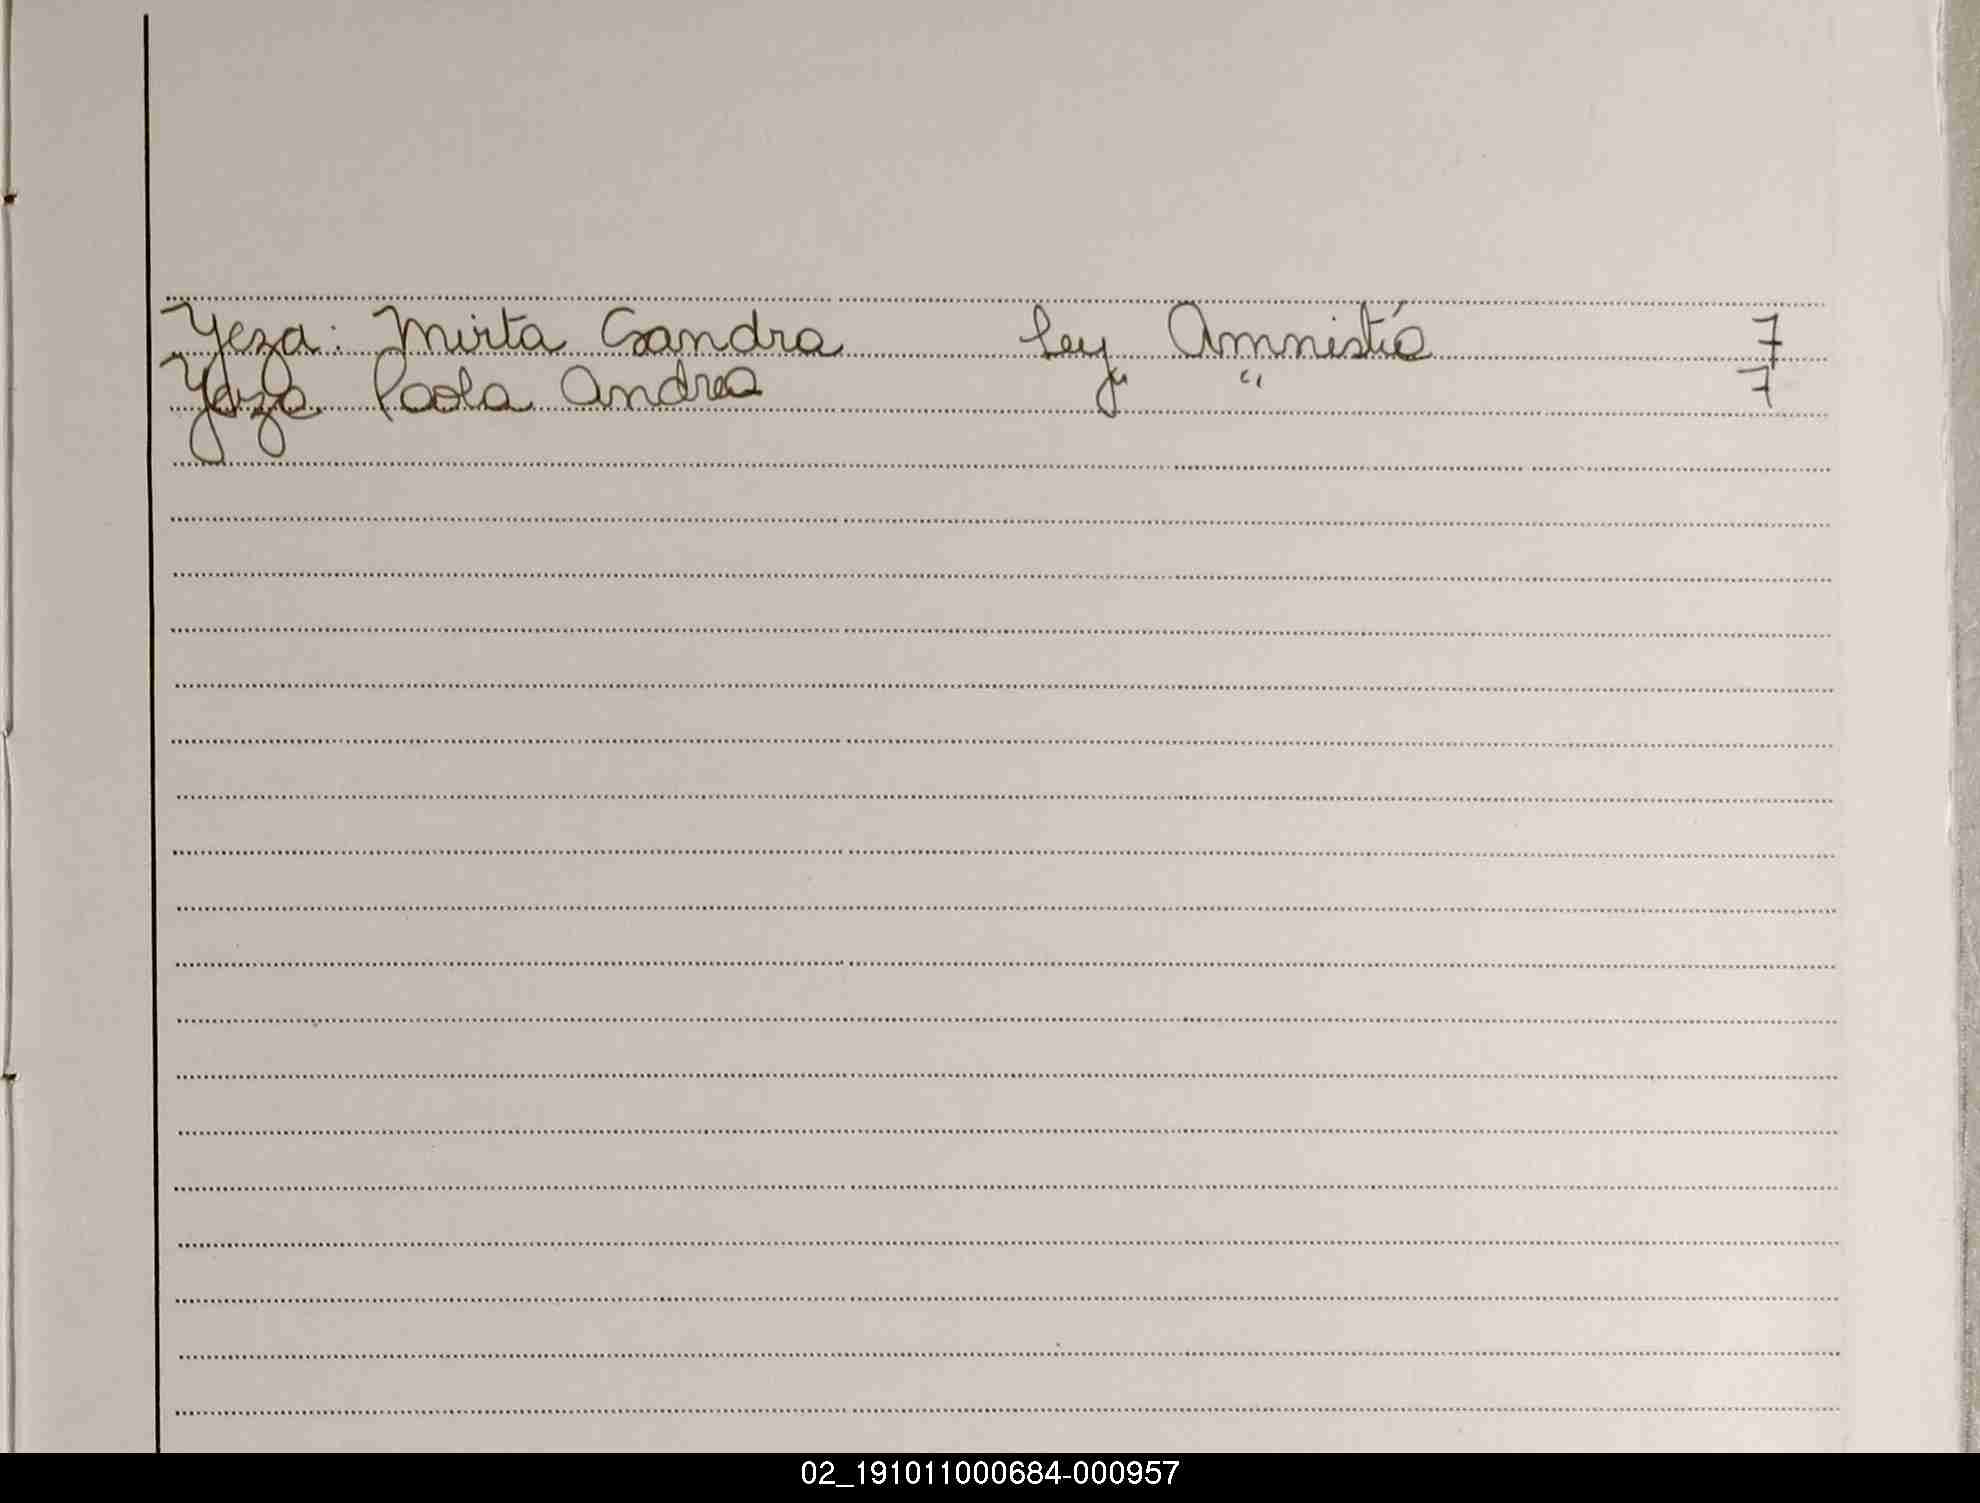 Yeza: Mirta Sandra Ley Amnistía 7
Yeza Paola Andrea " " 7
02_191011000684-000957